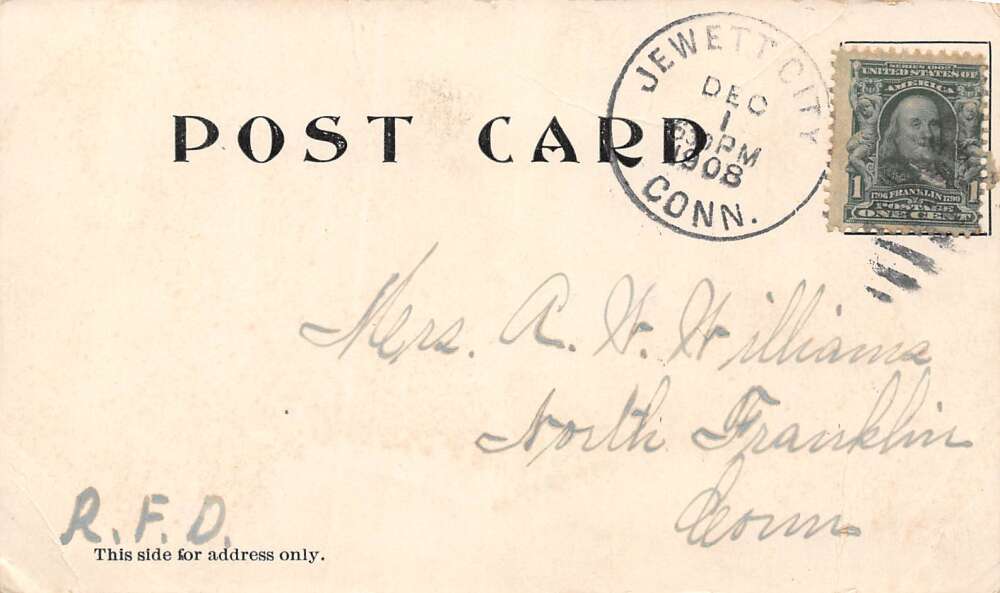 POST CARD
JEWETT CITY
DEC
1
1908
CONN.
SERIES 1902
UNITED STATES OF
AMERICA
1 1
1706 FRANKLIN 1790
POSTAGE
ONE CENT
Mrs. A. W. Williams
North Franklin
Conn
R. F. D.
This side for address only.